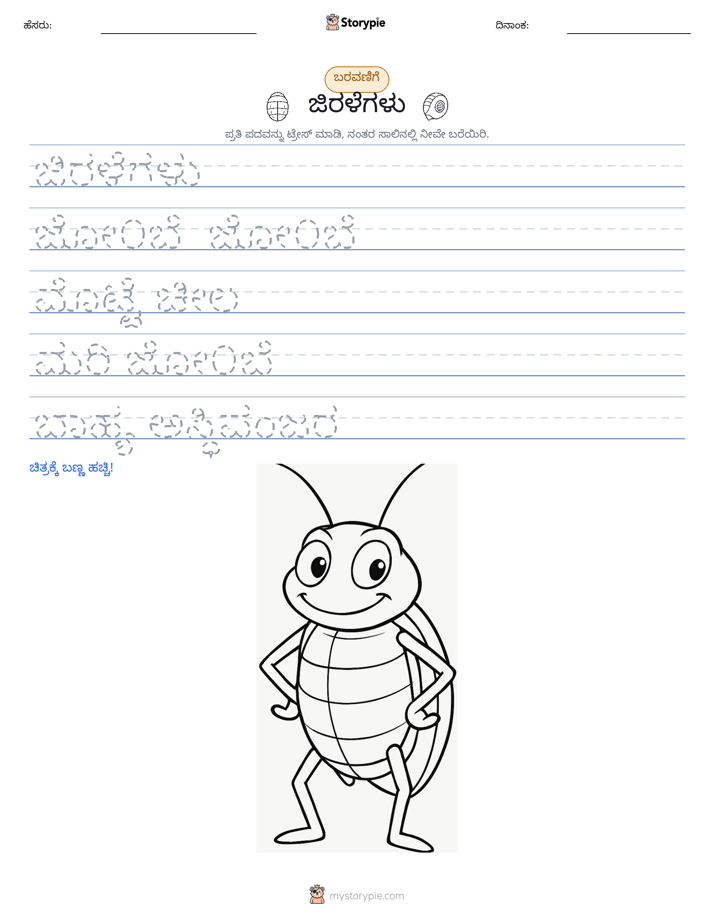 ಹೆಸರು:
Storypie
ದಿನಾಂಕ:
ಬರವಣಿಗೆ
ಜಿರಳೆಗಳು
ಪ್ರತಿ ಪದವನ್ನು ಟ್ರೇಸ್ ಮಾಡಿ, ನಂತರ ಸಾಲಿನಲ್ಲಿ ನೀವೇ ಬರೆಯಿರಿ.
ಜಿರಳೆಗಳು
ಜೋಂಬೆ ಜೋಂಬೆ
ಮೊಟ್ಟೆ ಚೀಲ
ಮರಿ ಜೋಂಬೆ
ಬಾಹ್ಯ ಅಸ್ಥಿಪಂಜರ
ಚಿತ್ರಕ್ಕೆ ಬಣ್ಣ ಹಚ್ಚಿ!
mystorypie.com